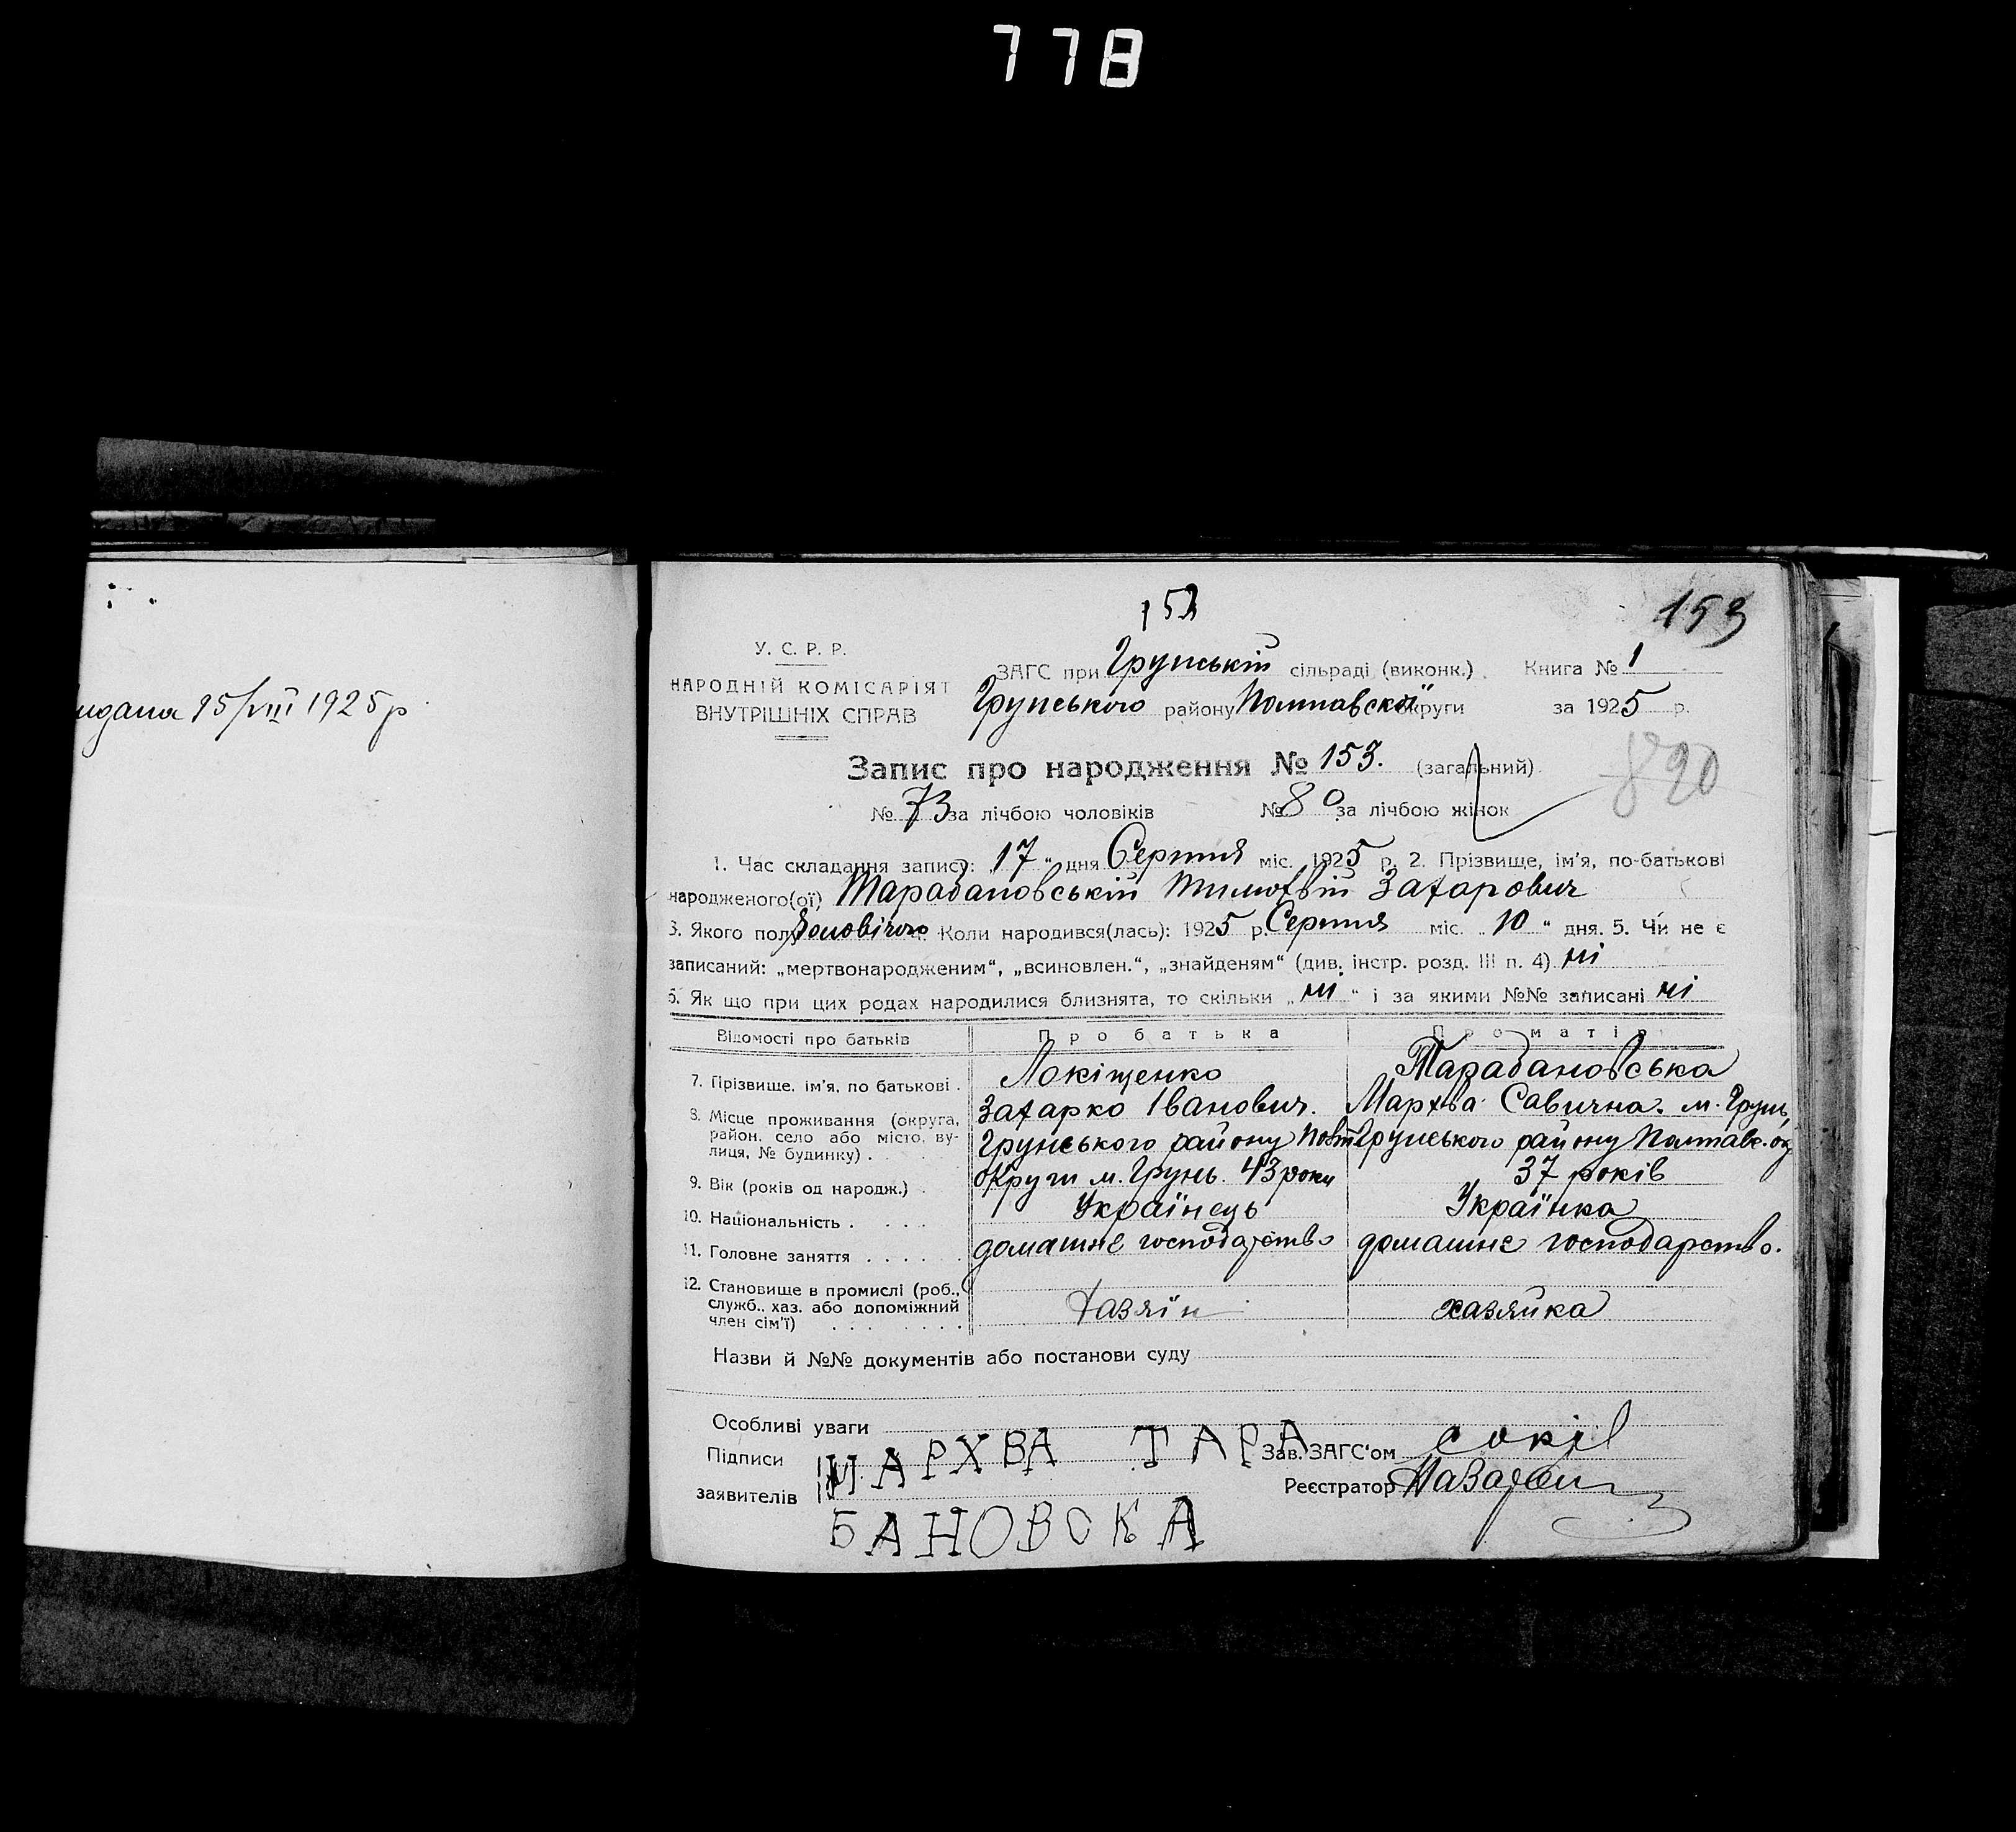 778
идана 15/VIII 1925 р.
153
153
У. С. Р. Р.
НАРОДНІЙ КОМІСАРІЯТ
ВНУТРІШНІХ СПРАВ
ЗАГС при Грунській сільраді (виконк.). Книга № 1
Грунського району Полтавської округи за 1925 р.
Запис про народження № 153. (загальний).
890
№ 73 за лічбою чоловіків № 80 за лічбою жінок
1. Час складання запису: „17“ дня Серпня міс. 1925 р. 2. Прізвище, ім'я, по-батькові
народженого(ої) Тарабановській Тимофвій Захарович
3. Якого полу Чоловічого 4. Коли народився(лась): 1925 р. Серпня міс. „10“ дня. 5. Чи не є
записаний: „мертвонародженим“, „всиновлен.“, „знайденям“ (див. інстр. розд. III п. 4) ні
6. Як що при цих родах народилися близнята, то скільки „ні“ і за якими №№ записані ні
Відомості про батьків Про батька Про матір
7. Прізвище, ім'я, по батькові . Локіщенко Тарабановська
Захарко Іванович. Мархва Савична. м. Грунь,
8. Місце проживання (округа, район, село або місто, вулиця, № будинку) . Грунського району Полт Грунського району Полтавс. ок
округи м. Грунь. 43 роки 37 років
9. Вік (років од народж.) .
10. Національність . . . . Українець Українка
11. Головне заняття . . . . . домашнє господарство домашнє господарство.
12. Становище в промислі (роб., служб., хаз. або допоміжний член сім'ї) . . . . . . . Хазяїн хазяйка
Назви й №№ документів або постанови суду
Особливі уваги
Підписи МАРХВА ТАРА Зав. ЗАГС'ом Сокіл
заявителів Реєстратор
БАНОВСКА